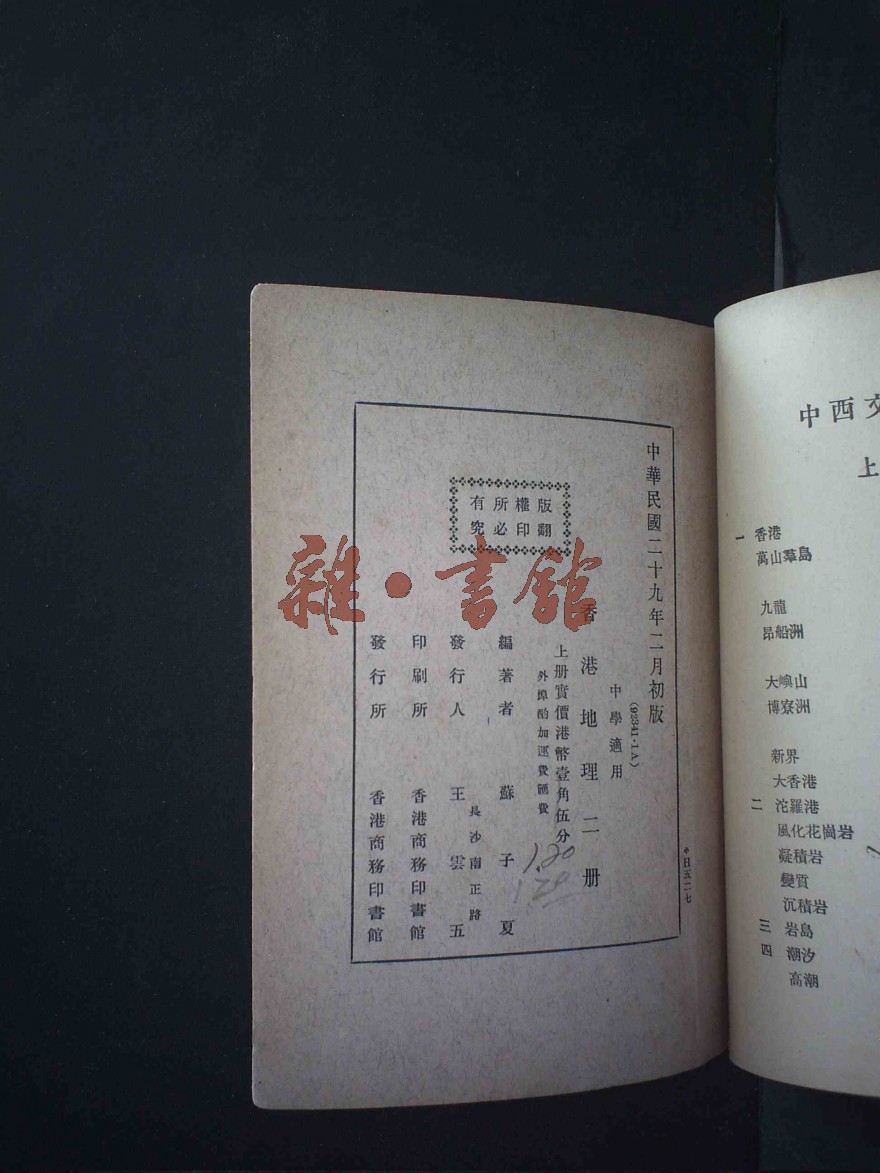 中華民國二十九年二月初版
(92341·1A)
中學適用
香港地理二册
上册實價港幣壹角伍分
外埠酌加運費匯費
版權所有
翻印必究
編著者 蘇子夏
長沙南正路
發行人 王雲五
印刷所 香港商務印書館
發行所 香港商務印書館
日五二七
1.20
雜·書館
中西交
上
一 香港
萬山羣島
九龍
昂船洲
大嶼山
博寮洲
新界
大香港
二 沱羅港
風化花崗岩
凝積岩
變質
沉積岩
三 岩島
四 潮汐
高潮